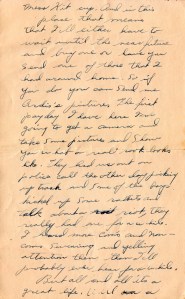 Mess Kit cup. And in this
place that means
that I'll either have to
wait until the near future
and buy one or have you
send one of those that I
had around home. So if
you do you can send me
Ardis's pictures the first
payday I have here I'm
going to get a camera and
take some pictures and show
you what army work looks
like. They had us out on
police call the other day picking
up trash and some of the boys
kicked up some
talk about they
really had me for a while.
I heard more
come swearing and yelling
attention then than I'll
probably ever hear for a while.
But all and all it's a
great life.